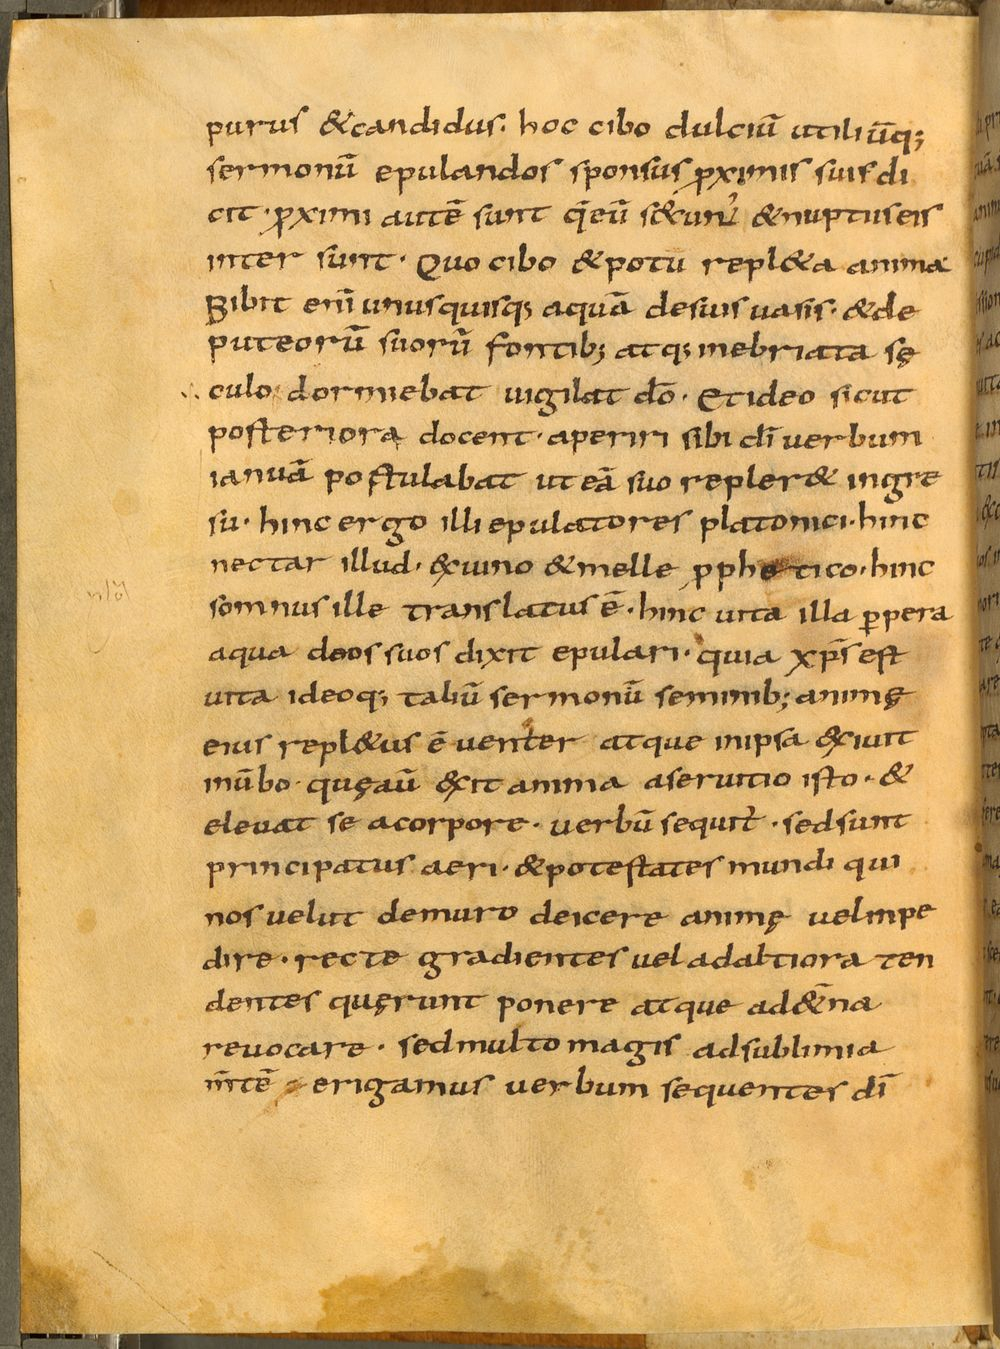 purus &candidus. hoc cibo dulciū utiliūq;
sermonū epulandos sponsus ꝓximis suis di
cit. ꝓximi autē sunt q̄ eū s&unt᷒ &nuptus eis
inter sunt. Quo cibo &potu repl&a anima
Bibit enī unusquisq; aquā de suis uasis. &de
puteorū suorū fontib; atq; inebriata sę
culo dormiebat uigilat dō. Et ideo sicut
posteriora docent. aperiri sibi dī uerbum
ianuā postulabat ut eā suo repler& ingre
su. hinc ergo illi epulatores platonici. hinc
nectar illud. &xuino &melle ꝓphetico. hinc
somnus ille translatus ē. hinc uita illa ꝑpera
aqua deos suos dixit epulari. quia xp̄s est
uita ideoq; taliū sermonū seminib; animę
eius repl&us ē uenter atque in ipsa &xiuit
in ūbo. quę aū &xit anima a seruitio isto. &
eleuat se a corpore. uerbū sequit᷒. sed sunt
principatus aeri. &potestates mundi qui
nos uelut de muro deicere animę uel inpe
dire. recte gradientes uel ad altiora ten
dentes quęrunt ponere atque ad &̄na
reuocare. sed multo magis ad sublimia
m̄tē erigamus uerbum sequentes dī